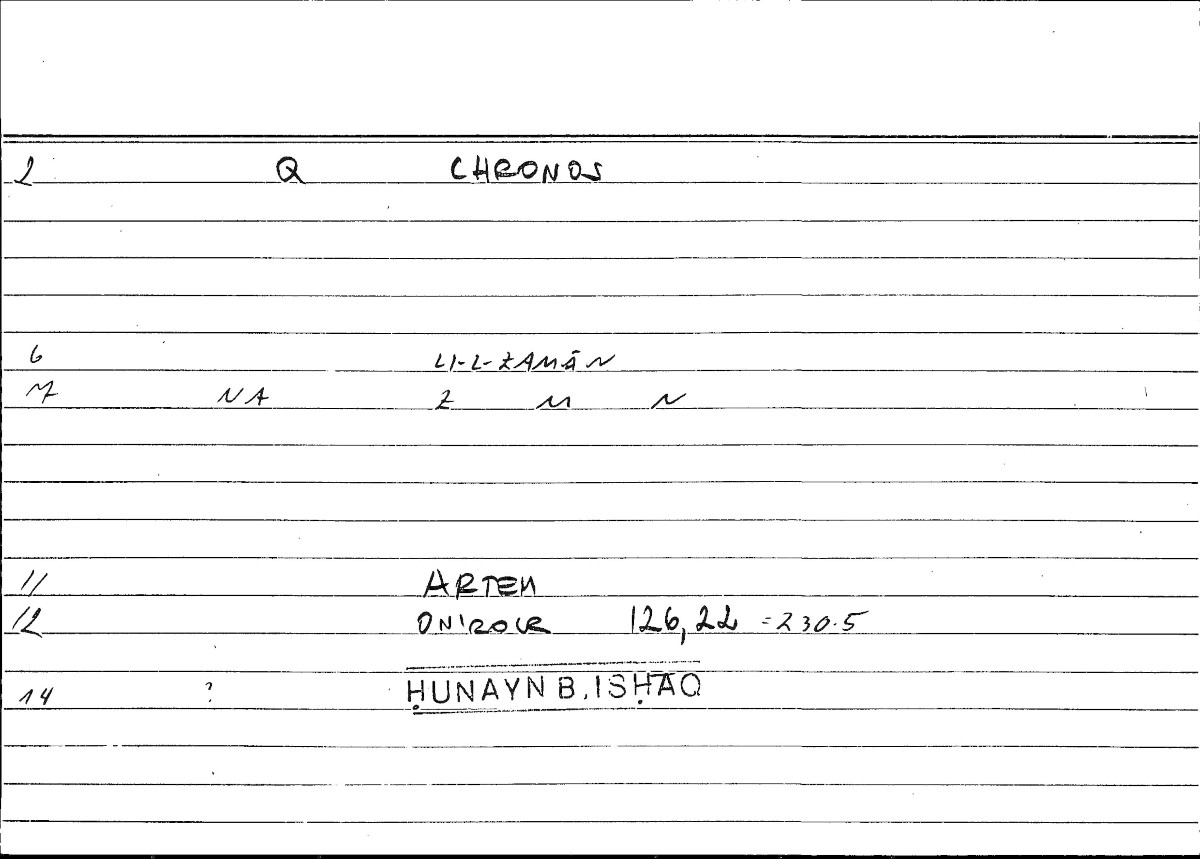 2 Q CHRONOS
6 LI-L-ZAMĀN
7 NA Z M N
11 ARTEM
12 ONIROCR 126,22 = 230.5
14 ? ḤUNAYN B. ISḤAQ